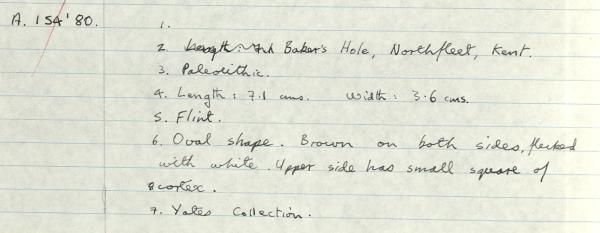 A. 154'80.
1.
2. Baker's Hole, Northfleet, Kent.
3. Paleolithic.
4. Length : 7.1 cms. Width : 3.6 cms.
5. Flint.
6. Oval shape. Brown on both sides, flecked
with white. Upper side has small square of
cortex.
7. Yates Collection.